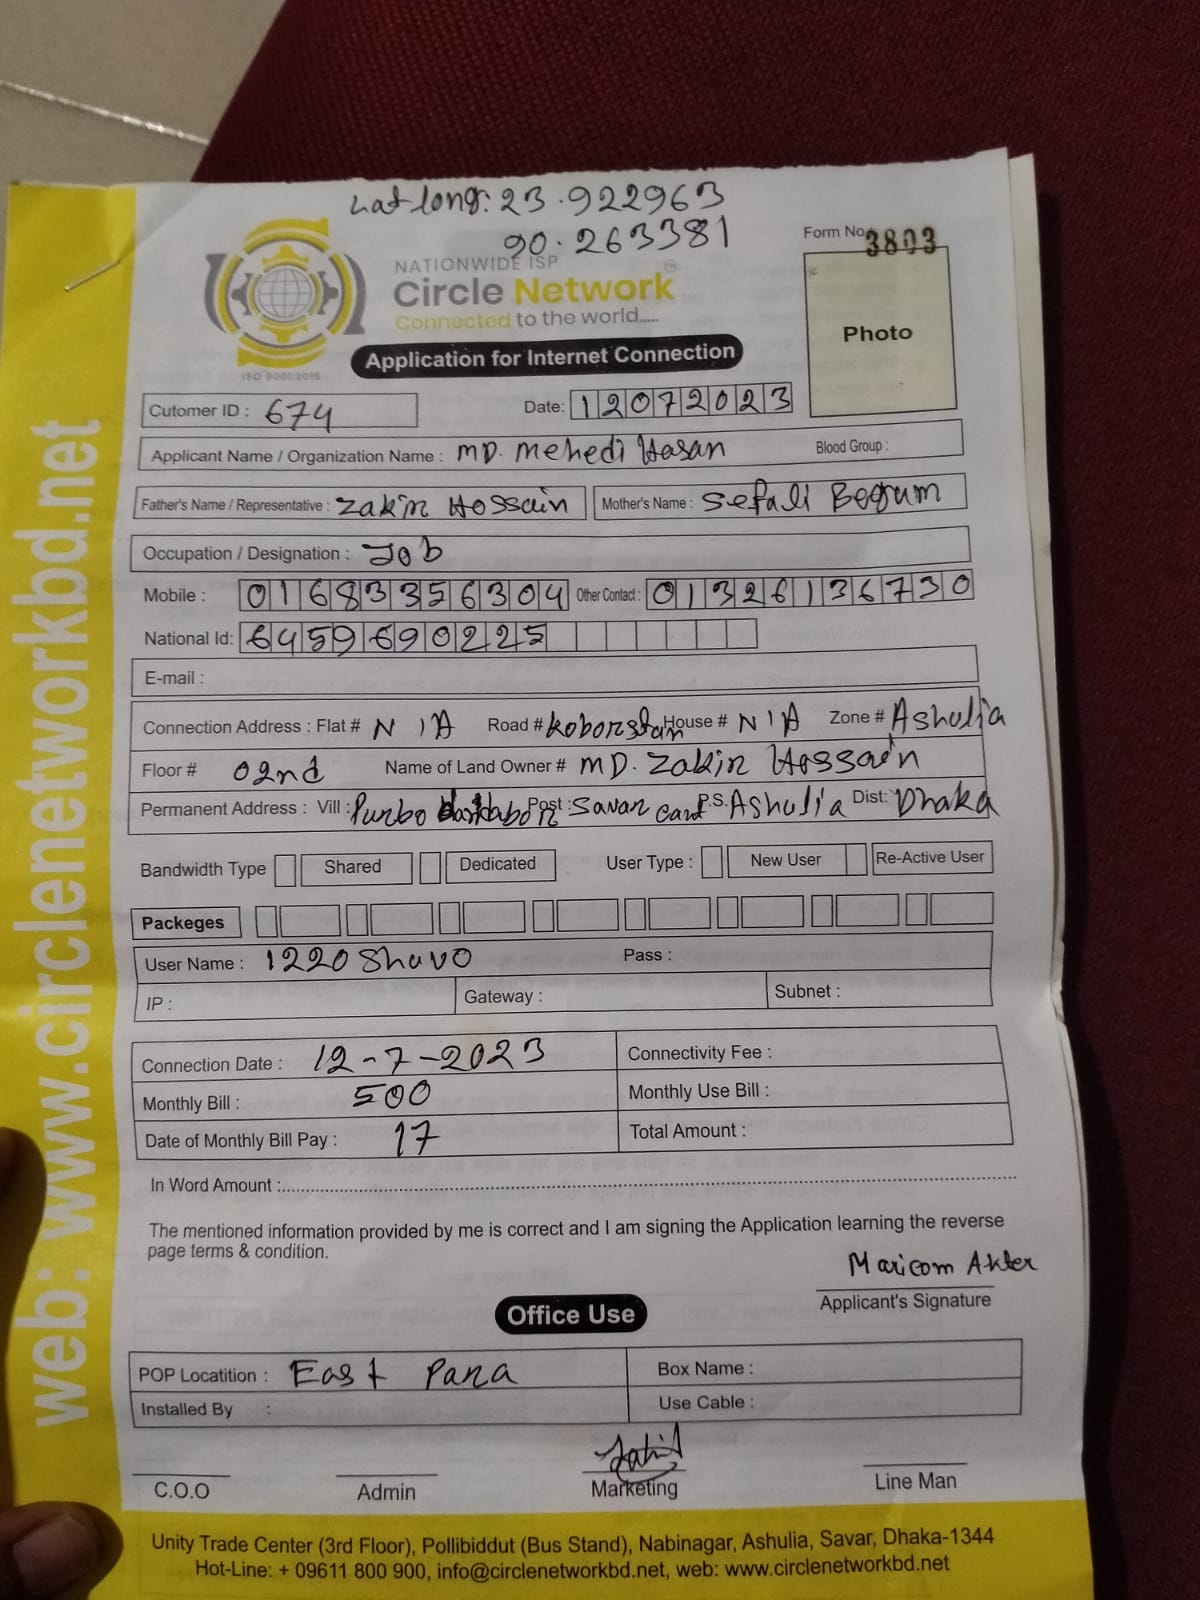 Lat long: 23.922963
90.263381
Form No. 3803
NATIONWIDE ISP
Circle Network
Connected to the world.....
ISO 9001:2015
Photo
Application for Internet Connection
Cutomer ID : 674 Date: 12072023
Applicant Name / Organization Name : MD. Mehedi Hasan Blood Group :
Father's Name / Representative : Zakir Hossain Mother's Name : Sefali Begum
Occupation / Designation : Job
Mobile : 01683356304 Other Contact : 01326136730
National Id: 6459690225
E-mail :
Connection Address : Flat # N/A Road # koborstan House # N/A Zone # Ashulia
Floor # 02nd Name of Land Owner # MD. Zakir Hossain
Permanent Address : Vill : Purbo Post : Savar cant P.S. Ashulia Dist: Dhaka
Bandwidth Type Shared Dedicated User Type : New User Re-Active User
Packeges
User Name : 1220Shuvo Pass :
IP : Gateway : Subnet :
Connection Date : 12-7-2023 Connectivity Fee :
Monthly Bill : 500 Monthly Use Bill :
Date of Monthly Bill Pay : 17 Total Amount :
In Word Amount :
The mentioned information provided by me is correct and I am signing the Application learning the reverse
page terms & condition.
Maricom Akter
Applicant's Signature
Office Use
POP Locatition : East Para Box Name :
Installed By : Use Cable :
C.O.O Admin Marketing Line Man
Unity Trade Center (3rd Floor), Pollibiddut (Bus Stand), Nabinagar, Ashulia, Savar, Dhaka-1344
Hot-Line: + 09611 800 900, info@circlenetworkbd.net, web: www.circlenetworkbd.net
web: www.circlenetworkbd.net